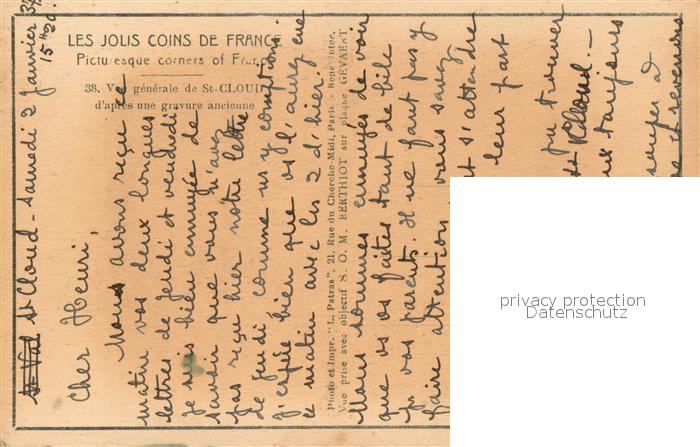 LES JOLIS COINS DE FRANCE
Picturesque corners of France
38. Vue générale de St-CLOUD
d'après une gravure ancienne
Photo et Impr. "L. Patras", 21, Rue du Cherche-Midi, Paris - Repr. Inter.
Vue prise avec objectif S. O. M. BERTHIOT sur plaque GEVAERT
St Cloud - Samedi 2 Janvier
15h20.
Cher Henri,
Nous avons reçu ce
matin vos deux longues
lettres de jeudi et vendredi
Je suis bien ennuyée de
savoir que vous n'avez
pas reçu hier notre lettre
de jeudi comme ns y comptions.
J'espère bien que vs l'aurez eue
ce matin avec les 2 d'hier.
Nous sommes ennuyés de voir
que vs vs faites tant de bile
pr vos parents. Il ne faut pas y
faire attention, vous savez
s'attendre
leur part
pu trouver
St Cloud. -
toujours
souper à
et revenus
privacy protection
Datenschutz